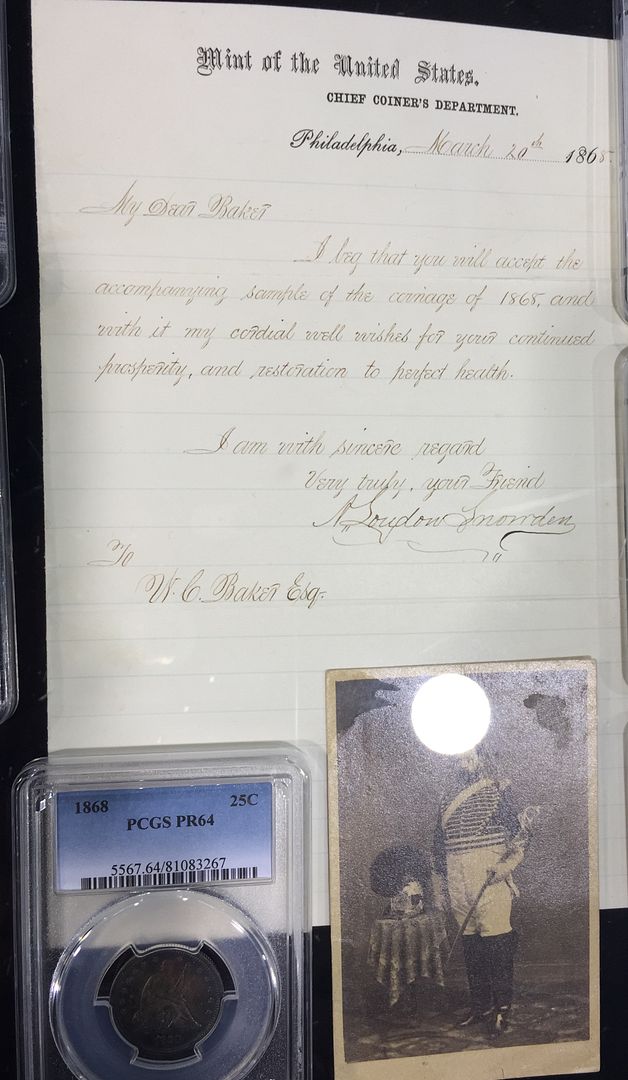 Mint of the United States.
CHIEF COINER'S DEPARTMENT.
Philadelphia, March 20th 1868
My Dear Baker
I beg that you will accept the
accompanying sample of the coinage of 1868, and
with it my cordial well wishes for your continued
prosperity, and restoration to perfect health.
I am with sincere regard
Very truly, your Friend
A Loudon Snowden
To
W. C. Baker Esq.
1868 25C
PCGS PR64
5567.64/81083267